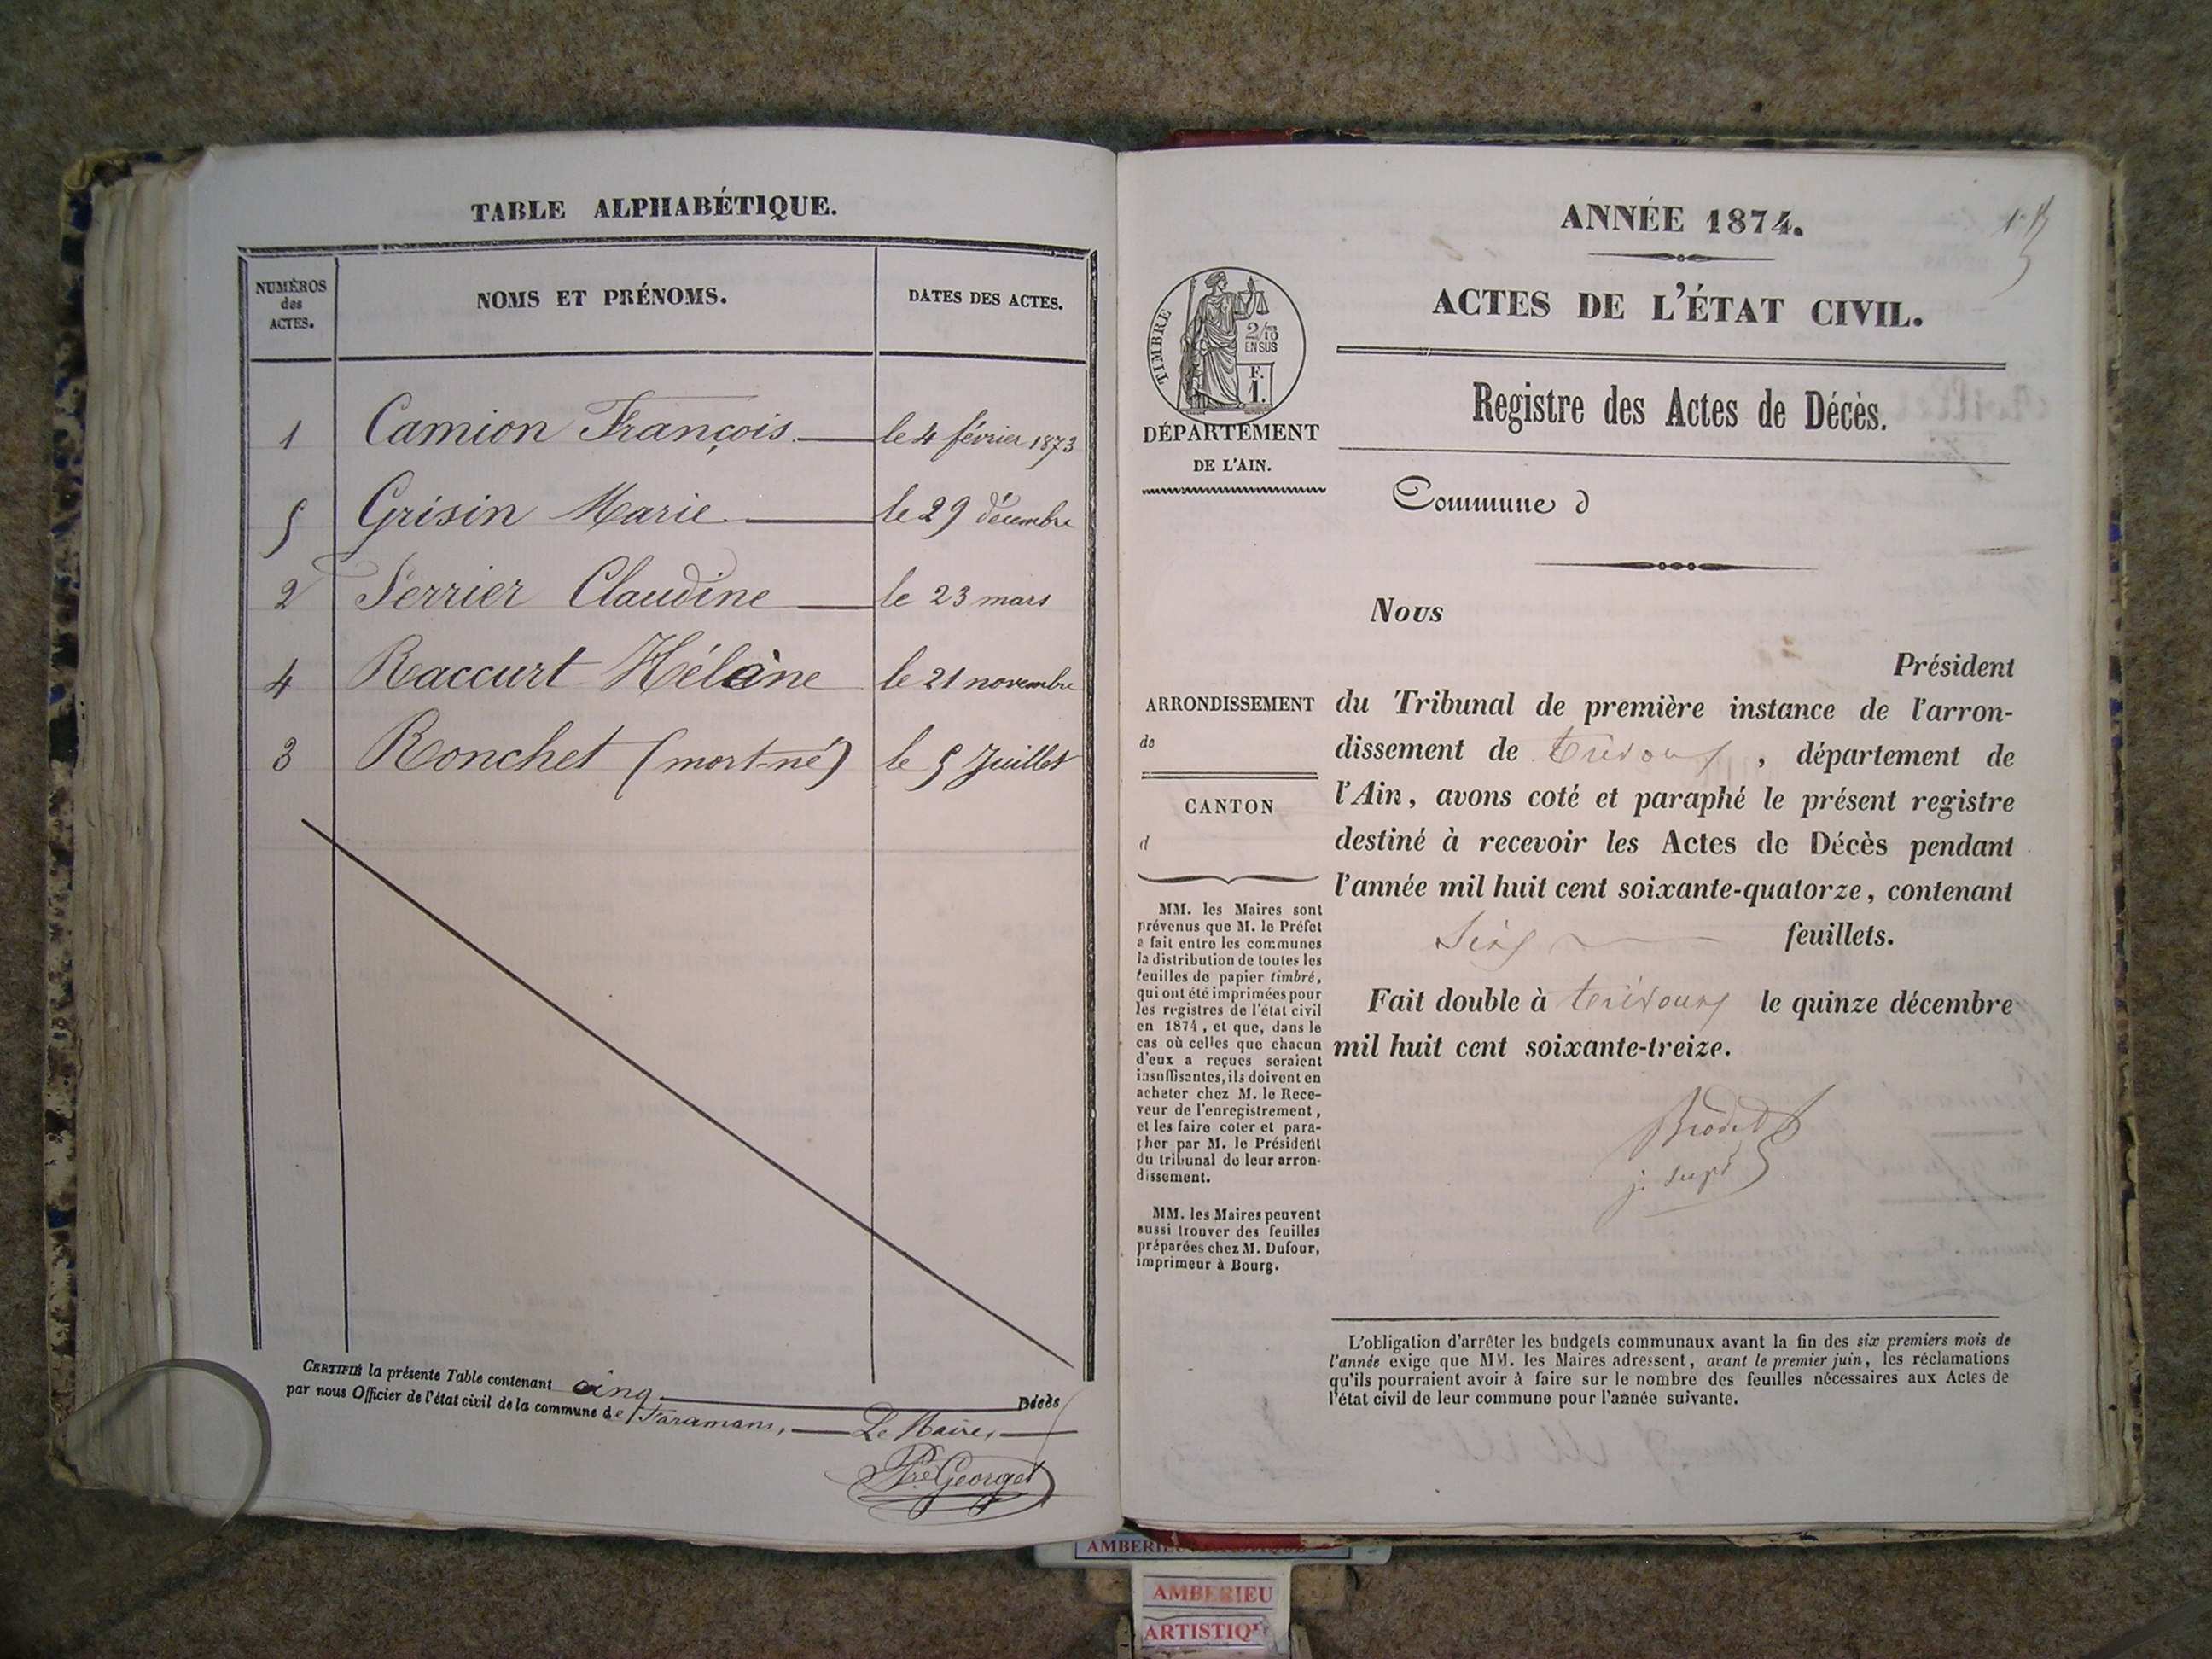 TABLE ALPHABÉTIQUE.
NUMÉROS
des
ACTES.
NOMS ET PRÉNOMS.
DATES DES ACTES.
1 Camion François. le 4 février 1873
5 Grisin Marie. le 29 décembre
2 Perrier Claudine le 23 mars
4 Raccurt Hélène le 21 novembre
3 Ronchet (mort-né) le 5 Juillet
CERTIFIÉ la présente Table contenant cinq Décès
par nous Officier de l'état civil de la commune de Faramans, Le Maire,
Pre Georget
ANNÉE 1874.
ACTES DE L'ÉTAT CIVIL.
TIMBRE
2/10
EN SUS
F.
1.
DÉPARTEMENT
DE L'AIN.
Registre des Actes de Décès.
Commune d
Nous
Président
du Tribunal de première instance de l'arron-
dissement de Trévoux, département de
l'Ain, avons coté et paraphé le présent registre
destiné à recevoir les Actes de Décès pendant
l'année mil huit cent soixante-quatorze, contenant
feuillets.
Fait double à Trévoux le quinze décembre
mil huit cent soixante-treize.
j. supt
ARRONDISSEMENT
de
CANTON
d
MM. les Maires sont
prévenus que M. le Préfet
a fait entre les communes
la distribution de toutes les
feuilles de papier timbré,
qui ont été imprimées pour
les registres de l'état civil
en 1874, et que, dans le
cas où celles que chacun
d'eux a reçues seraient
insuffisantes, ils doivent en
acheter chez M. le Rece-
veur de l'enregistrement,
et les faire coter et para-
pher par M. le Président
du tribunal de leur arron-
dissement.
MM. les Maires peuvent
aussi trouver des feuilles
préparées chez M. Dufour,
imprimeur à Bourg.
L'obligation d'arrêter les budgets communaux avant la fin des six premiers mois de
l'année exige que MM. les Maires adressent, avant le premier juin, les réclamations
qu'ils pourraient avoir à faire sur le nombre des feuilles nécessaires aux Actes de
l'état civil de leur commune pour l'année suivante.
AMBERIEU ARTISTIQUE
AMBERIEU
ARTISTIQUE